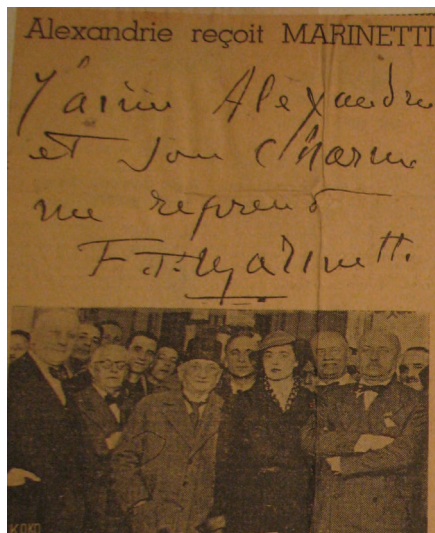 Alexandrie reçoit MARINETTI
J'aime Alexandrie
et son charme
me reprend
F. T. Marinetti
KOKO